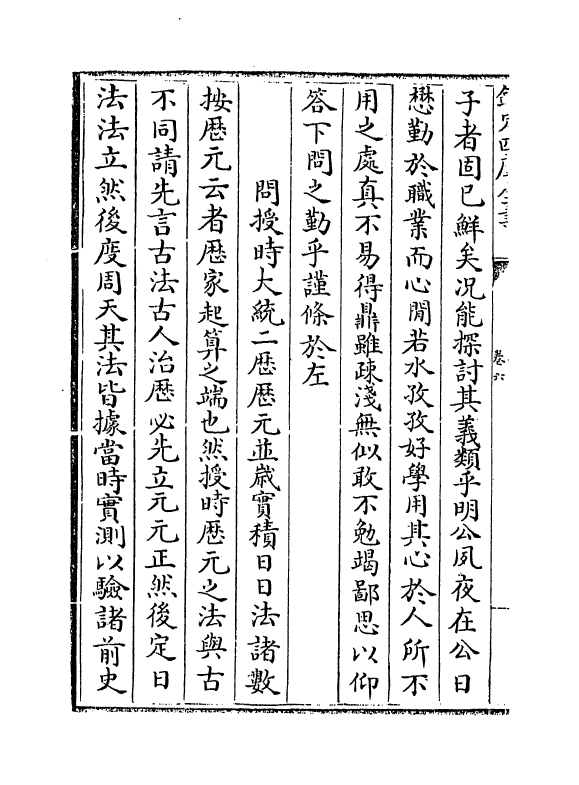 欽定四庫全書
卷六
子者固已鮮矣况能探討其義類乎明公夙夜在公日
懋勤於職業而心閒若水孜孜好學用其心於人所不
用之處真不易得鼎雖疎淺無似敢不勉竭鄙思以仰
答下問之勤乎謹條於左
問授時大統二歷歷元並歲實積日日法諸數
按歷元云者歷家起算之端也然授時歷元之法與古
不同請先言古法古人治歷必先立元元正然後定日
法法立然後度周天其法皆據當時實測以驗諸前史